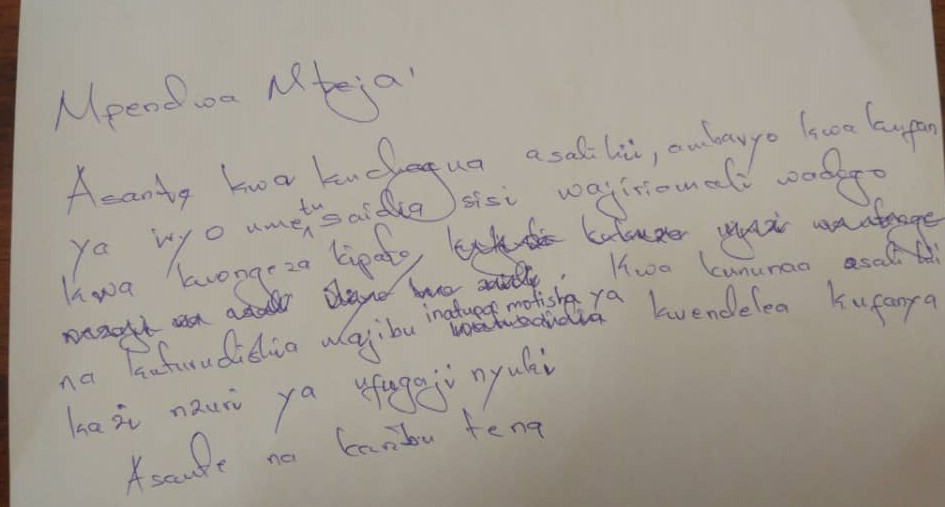 Mpendwa Mteja'
Asante kwa kuchagua asali hii, ambavyo kwa kufan
ya ivyo umetusaidia sisi wajiriamali wadogo
kwa kuongeza kipato
Kwa kununua asali hii
na kuturudishia majibu inatupa motisha ya kwendelea kufanya
kazi nzuri ya ufugaji nyuki
Asante na karibu tena